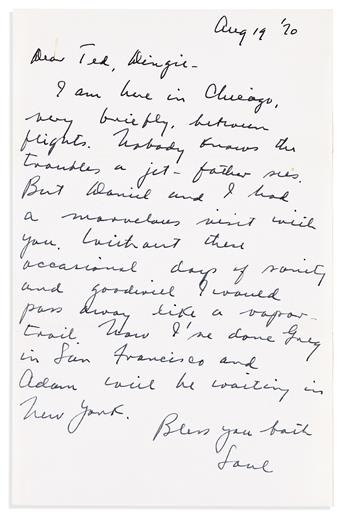 Aug 19 '70
Dear Ted, Dingie -
I am here in Chicago,
very briefly, between
flights. Nobody knows the
troubles a jet-father sees.
But Daniel and I had
a marvelous visit with
you. Without these
occasional days of sanity
and goodwill I would
pass away like a vapor-
trail. Now I've done Greg
in San Francisco and
Adam will be waiting in
New York.
Bless you both
Saul